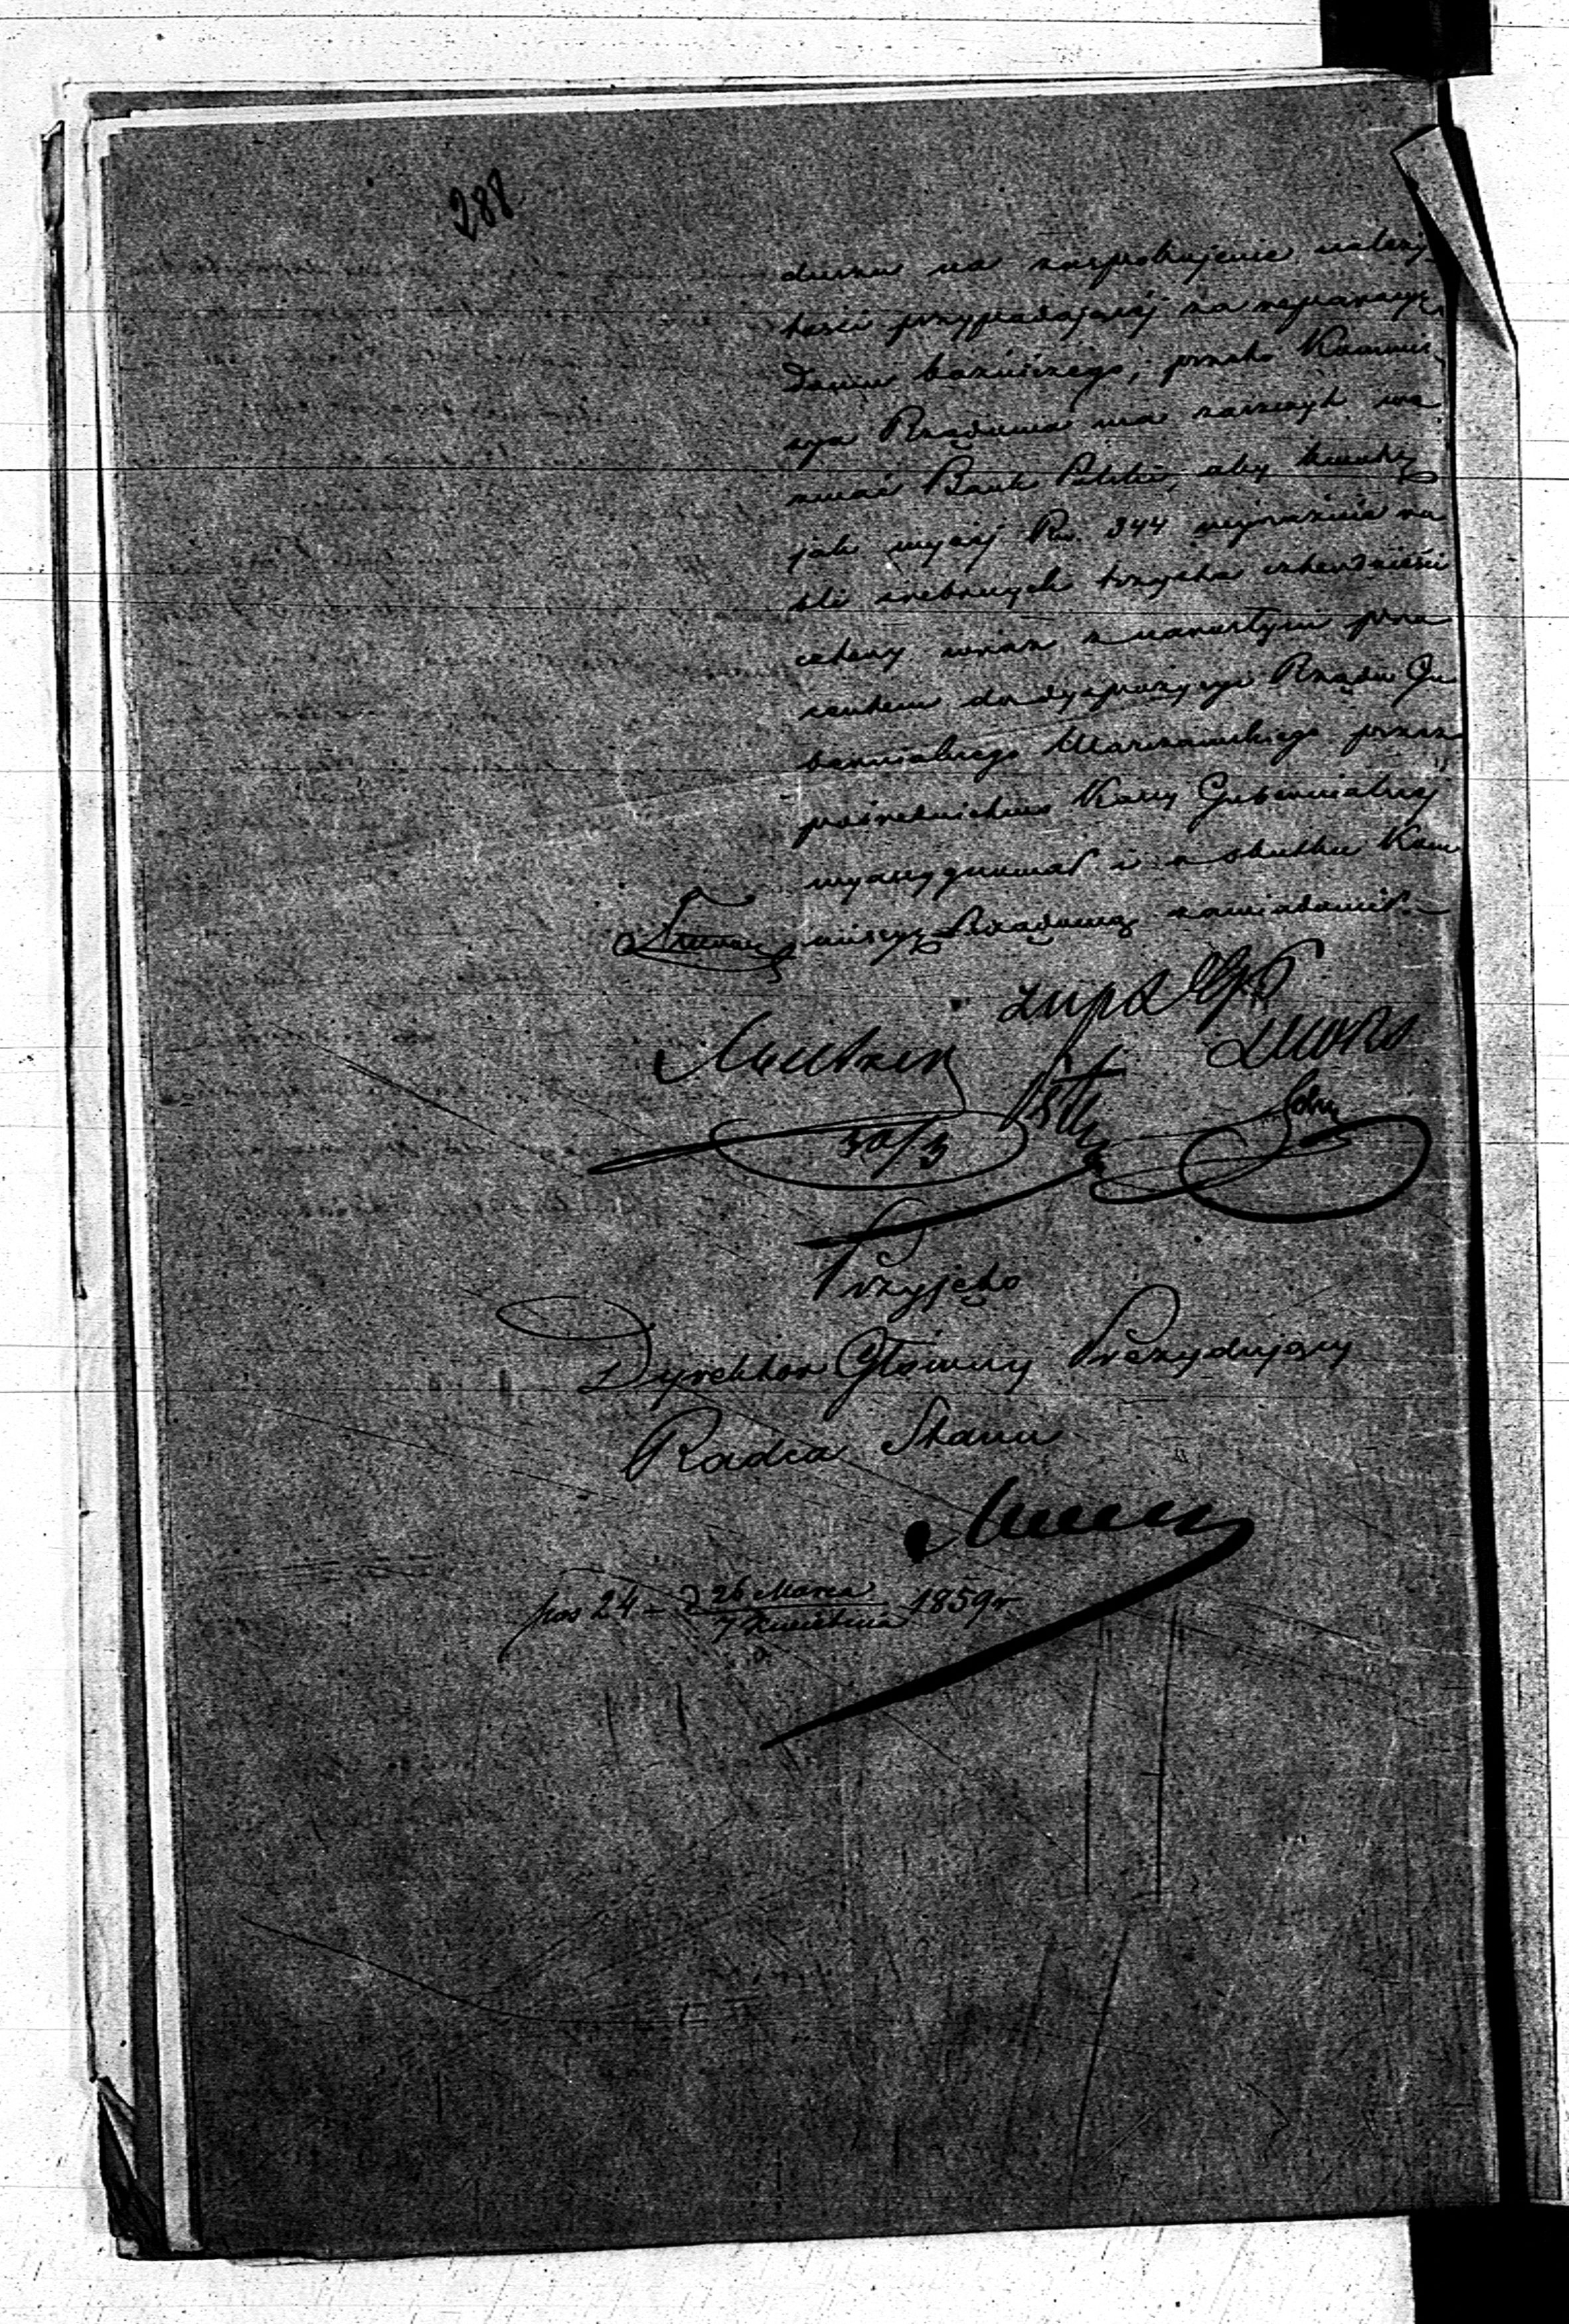 288
duszu na zaspokojenie należy
tości przypadającej za reparacyę
Domu bożniczego, przeto Kommis
sya Rządowa ma zaszczyt we
zwać Bank Polski, aby kwotę
jak wyżej Rs. 344 wyraźnie ru
bli srebrnych trzysta czterdzieści
cztery wraz z narosłym pro
centem do dyspozycyi Rządu Gu
bernialnego Warszawskiego przez
pośrednictwo Kassy Gubernialnej
wyassygnował i o skutku Kom
missyę Rządową zawiadomił.
30/3
Przyjęto
Dyrektor Główny Prezydujący
Radca Stanu
pos 24 - d 26 Marca / 7 Kwietnia 1859 r